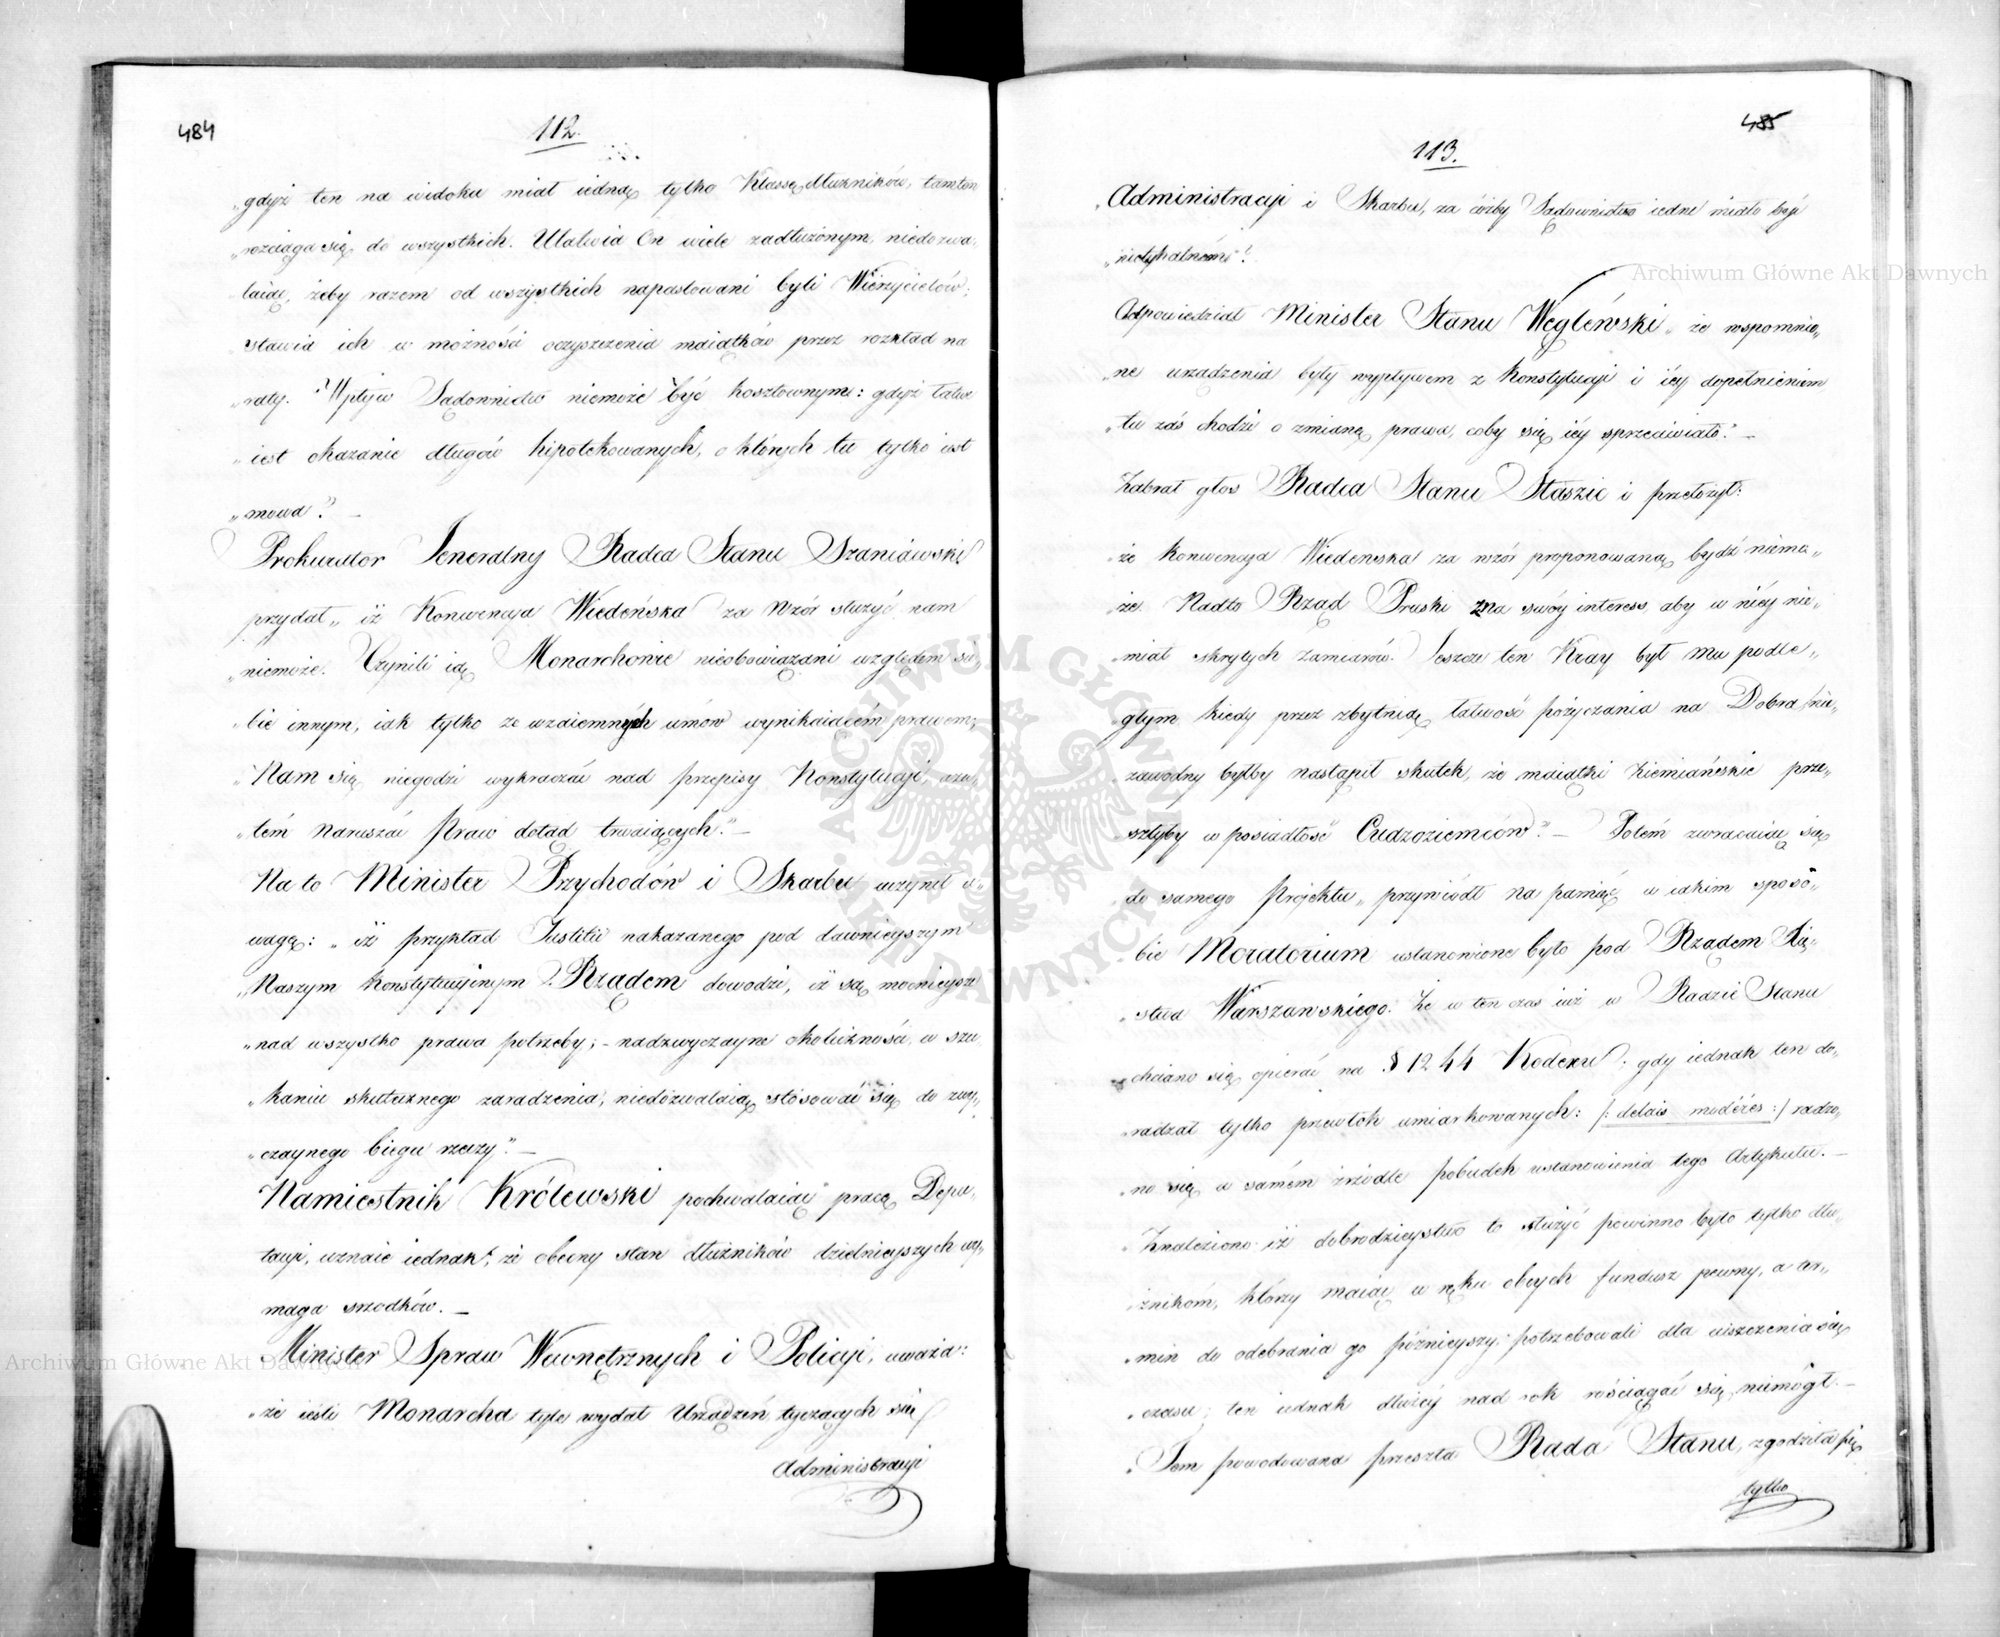 484
112.
„gdyż ten na widoku miał iedną tylko Klassę dłużników, tamten
„rozciąga się do wszystkich. Ułatwia On wiele zadłużonym, niedozwa-
„laiąc, żeby razem od wszystkich napastowani byli Wierzycielów;
„stawia ich w możności oczyszczenia maiątków przez rozkład na
„raty. Wpływ Sądownictw niemoże być kosztownym: gdyż łatwe
„iest okazanie długów hipotekowanych, o których tu tylko iest
„mowa”. —
Prokurator Jeneralny Radca Stanu Szaniawski
przydał „iż Konwencya Wiedeńska za wzór służyć nam
„niemoże. Czynili ią Monarchowie nieobowiązani względem sie-
„bie innym, iak tylko ze wzaiemnych umów wynikaiącém prawem;
„Nam się niegodzi wykraczać nad przepisy Konstytucyi, a za-
„tém naruszać Praw dotąd trwaiących.” —
Na to Minister Przychodów i Skarbu uczynił u-
wagę: „iż przykład Justitii nakazanego pod dawnieyszym
„Naszym Konstytucyinym Rządem dowodzi, iż są mocnieysze
„nad wszystko prawa potrzeby; – nadzwyczayne okoliczności, w szu-
„kaniu skutecznego zaradzenia, niedozwalaią stósować się do zwy-
„czaynego biegu rzeczy.” —
Namiestnik Królewski pochwalaiąc pracę Depu-
tacyi, uznaie iednak, że obecny stan dłużników dzielnieyszych wy-
maga srzodków. —
Minister Spraw Wewnętrznych i Policyi, uważa:
„że ieśli Monarcha tyle wydał Urządzeń tyczących się
Administracyi
485
113.
„Administracyi i Skarbu, za cóżby Sądownictwo iedne miało być
„nietykalnem”?
Odpowiedział Minister Stanu Węgleński „że wspomnio-
„ne urządzenia były wypływem z Konstytucyi i iéy dopełnieniem,
„tu zaś chodzi o zmianę prawa, coby się iéy sprzeciwiało.” —
Zabrał głos Radca Stanu Staszic i przełożył:
„że Konwencya Wiedenska za wzór proponowaną bydź niemo-
„że. Nadto Rząd Pruski zna swóy interess, aby w niéy nie-
„miał skrytych zamiarów. Jeszcze ten Kray był mu podle-
„głym kiedy przez zbytnią łatwość pożyczania na Dobra, nie-
„zawodny byłby nastąpił skutek, że maiątki ziemiańskie prze-
„szłyby w posiadłość Cudzoziemców”. — Potém zwracaiąc się
„do samego Projektu „przywiódł na pamięć w iakim sposo-
„bie Moratorium ustanowione było pod Rządem Xię-
„stwa Warszawskiego. Że w ten czas iuż w Radzie Stanu
„chciano się opierać na § 1244 Kodexu; gdy iednak ten do-
„radzał tylko przewłok umiarkowanych: /: delais modérés :/ radzo-
„no się w samém źrzódle pobudek ustanowienia tego Artykułu. —
„Znaleziono iż dobrodzieystwo to służyć powinno było tylko dłu-
„żnikóm, którzy maiąc w ręku obcych fundusz pewny, a ter-
„min do odebrania go późnieyszy, potrzebowali dla uiszczenia się
„czasu; ten iednak dłużéy nad rok rościągać się niemógł. —
„Tem powodowana przeszła Rada Stanu, zgodziła się
tylko
Archiwum Główne Akt Dawnych
Archiwum Główne Akt Dawnych
ARCHIWUM GŁÓWNE AKT DAWNYCH